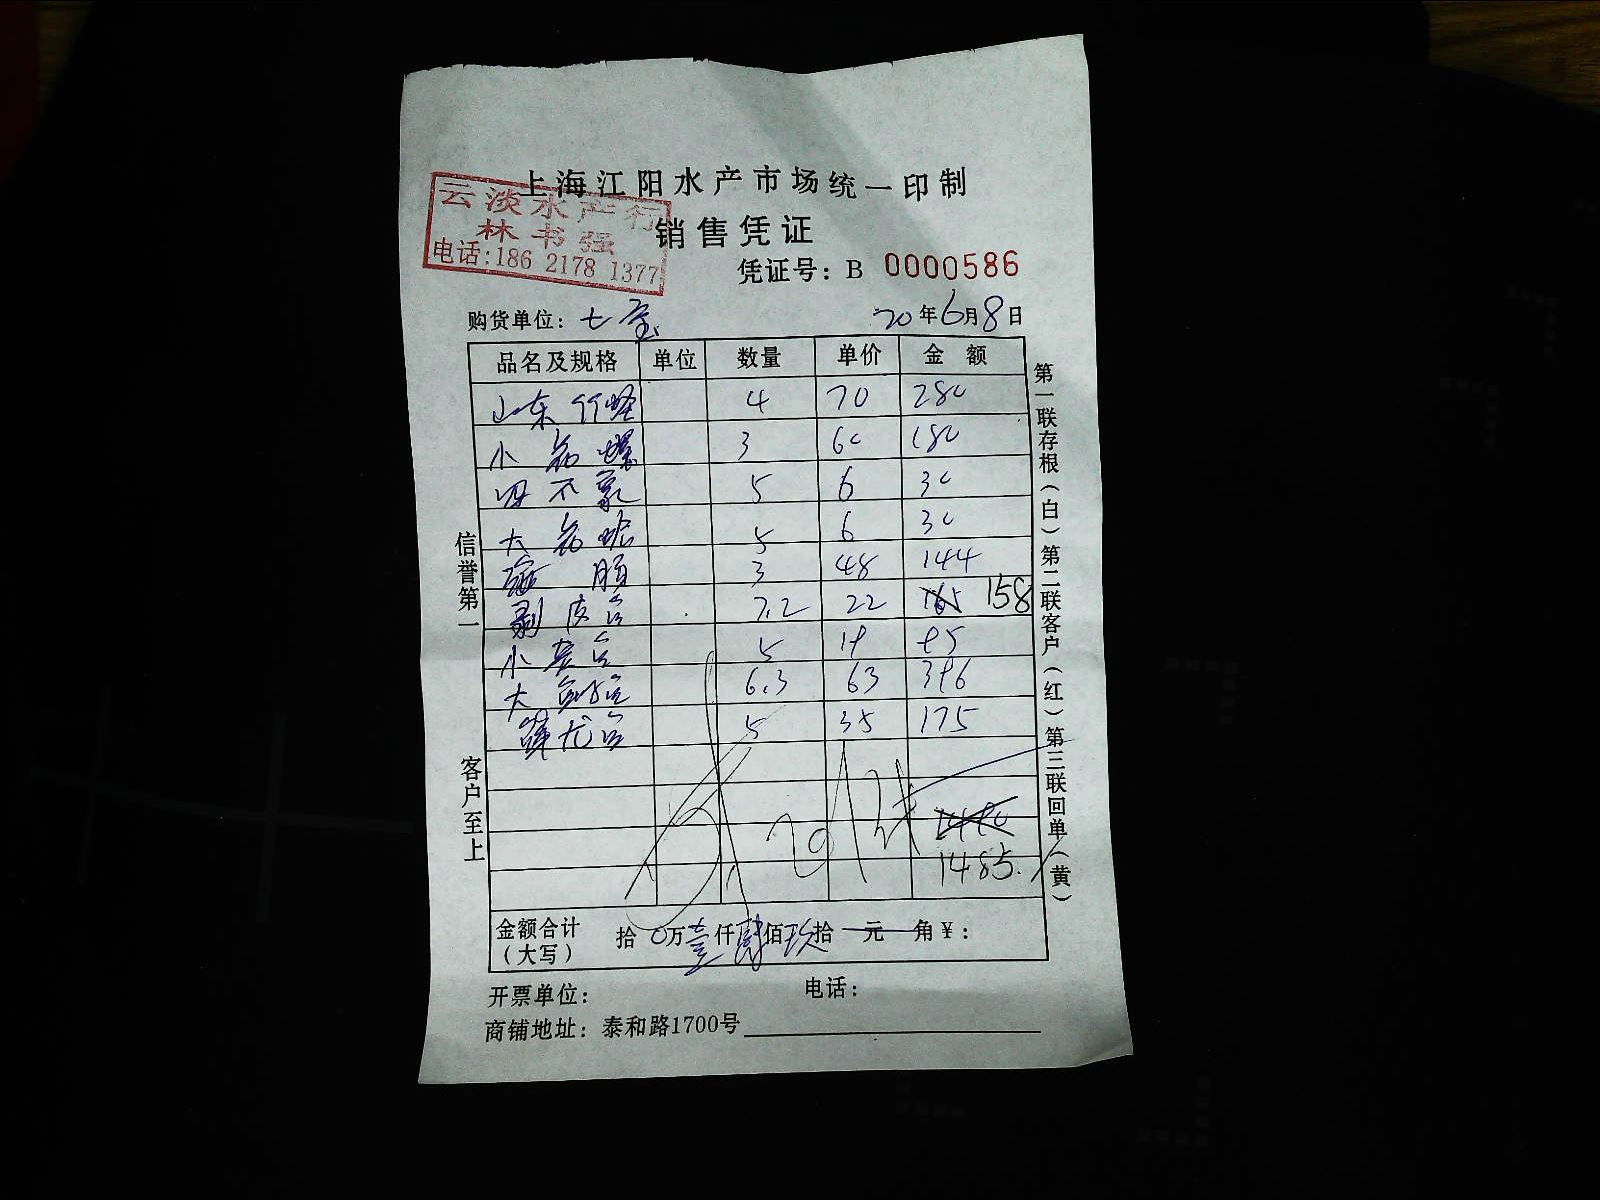 上海江阳水产市场统一印制
云淡水产行
林书强
电话:186 2178 1377
销售凭证
凭证号: B 0000586
购货单位: 七宝
20年6月8日
品名及规格 单位 数量 单价 金额
山东竹蛏 4 70 280
小 螺 3 60 180
不 5 6 30
大 5 6 30
3 48 144
剥皮 7.2 22 165 158
小 5 19 95
大 6.3 63 396
龙 5 35 175
1490
1485.
金额合计
(大写)
拾 0万壹仟肆佰玖拾 元 角¥:
开票单位: 电话:
商铺地址: 泰和路1700号
信誉第一
客户至上
第一联存根(白)第二联客户(红)第三联回单(黄)